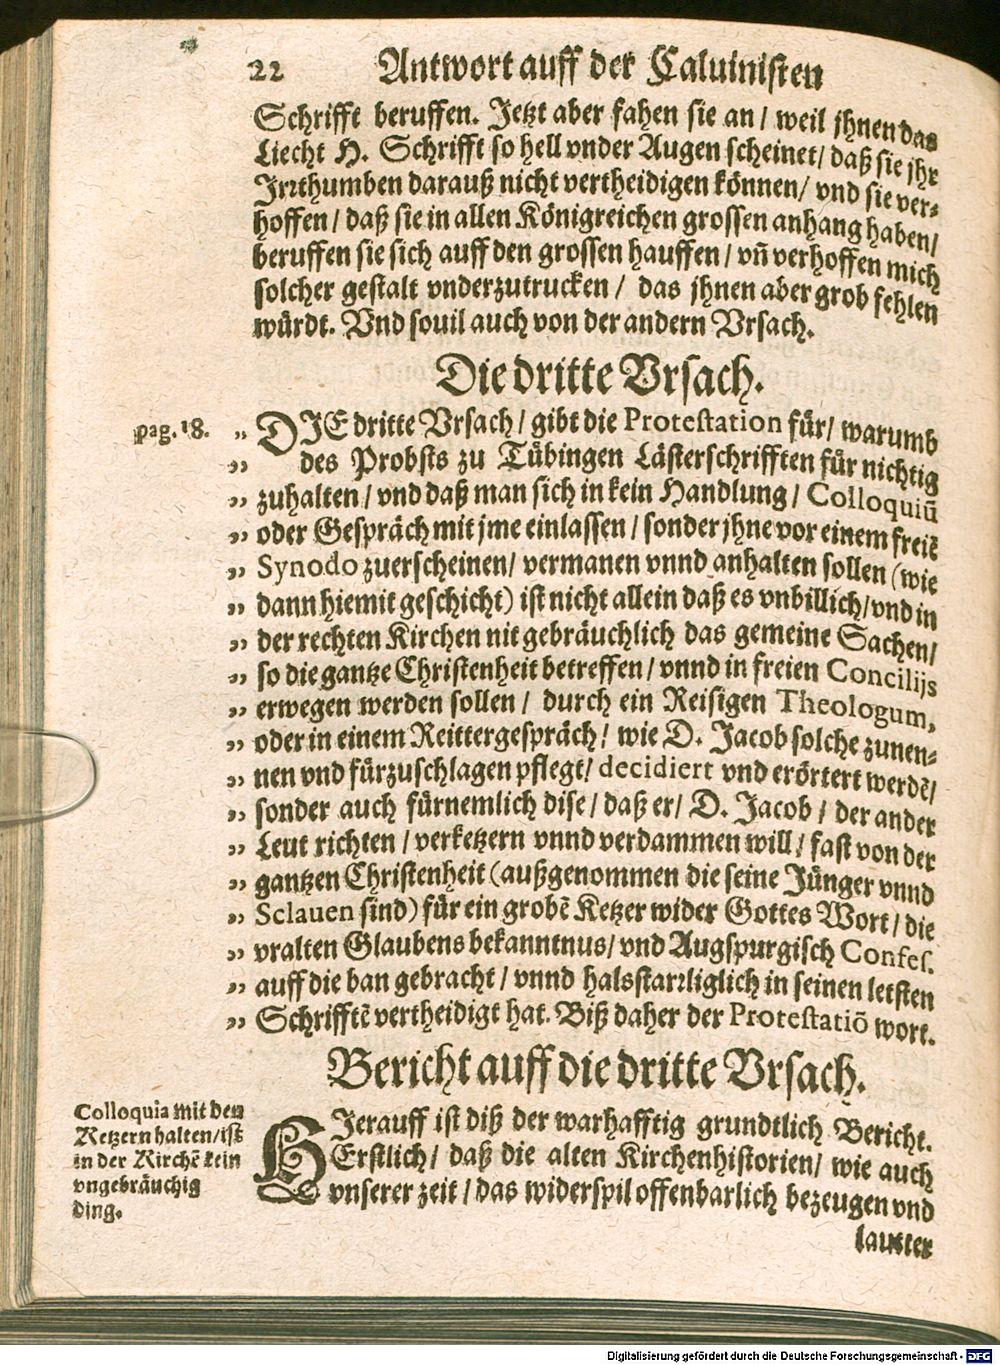 22 Antwort auff der Caluinisten
Schrifft beruffen. Jetzt aber fahen sie an / weil jhnen das
Liecht H. Schrifft so hell vnder Augen scheinet / daß sie jhr
Irrthumben darauß nicht vertheidigen können / vnd sie ver⸗
hoffen / daß sie in allen Königreichen grossen anhang haben /
beruffen sie sich auff den grossen hauffen / vn̄ verhoffen mich
solcher gestalt vnderzutrucken / das jhnen aber grob fehlen
würdt. Vnd souil auch von der andern Vrsach.
Die dritte Vrsach.
pag. 18.
„ DIE dritte Vrsach / gibt die Protestation für / warumb
„ des Probsts zu Tübingen Lästerschrifften für nichtig
„ zuhalten / vnd daß man sich in kein Handlung / Colloquiū
„ oder Gespräch mit jme einlassen / sonder jhne vor einem freiē
„ Synodo zuerscheinen / vermanen vnnd anhalten sollen (wie
„ dann hiemit geschicht) ist nicht allein daß es vnbillich / vnd in
„ der rechten Kirchen nit gebräuchlich das gemeine Sachen /
„ so die gantze Christenheit betreffen / vnnd in freien Concilijs
„ erwegen werden sollen / durch ein Reisigen Theologum,
„ oder in einem Reittergespräch / wie D. Jacob solche zunen⸗
„ nen vnd fürzuschlagen pflegt / decidiert vnd erörtert werdē /
„ sonder auch fürnemlich dise / daß er / D. Jacob / der ander
„ Leut richten / verketzern vnnd verdammen will / fast von der
„ gantzen Christenheit (außgenommen die seine Jünger vnnd
„ Sclauen sind) für ein grobē Ketzer wider Gottes Wort / die
„ vralten Glaubens bekanntnus / vnd Augspurgisch Confes.
„ auff die ban gebracht / vnnd halsstarrliglich in seinen letsten
„ Schrifftē vertheidigt hat. Biß daher der Protestatiō wort.
Bericht auff die dritte Vrsach.
Colloquia mit den
Ketzern halten / ist
in der Kirchē kein
vngebräuchig
ding.
HIerauff ist diß der warhafftig grundtlich Bericht.
Erstlich / daß die alten Kirchenhistorien / wie auch
vnserer zeit / das widerspil offenbarlich bezeugen vnd
lautter
Digitalisierung gefördert durch die Deutsche Forschungsgemeinschaft - DFG